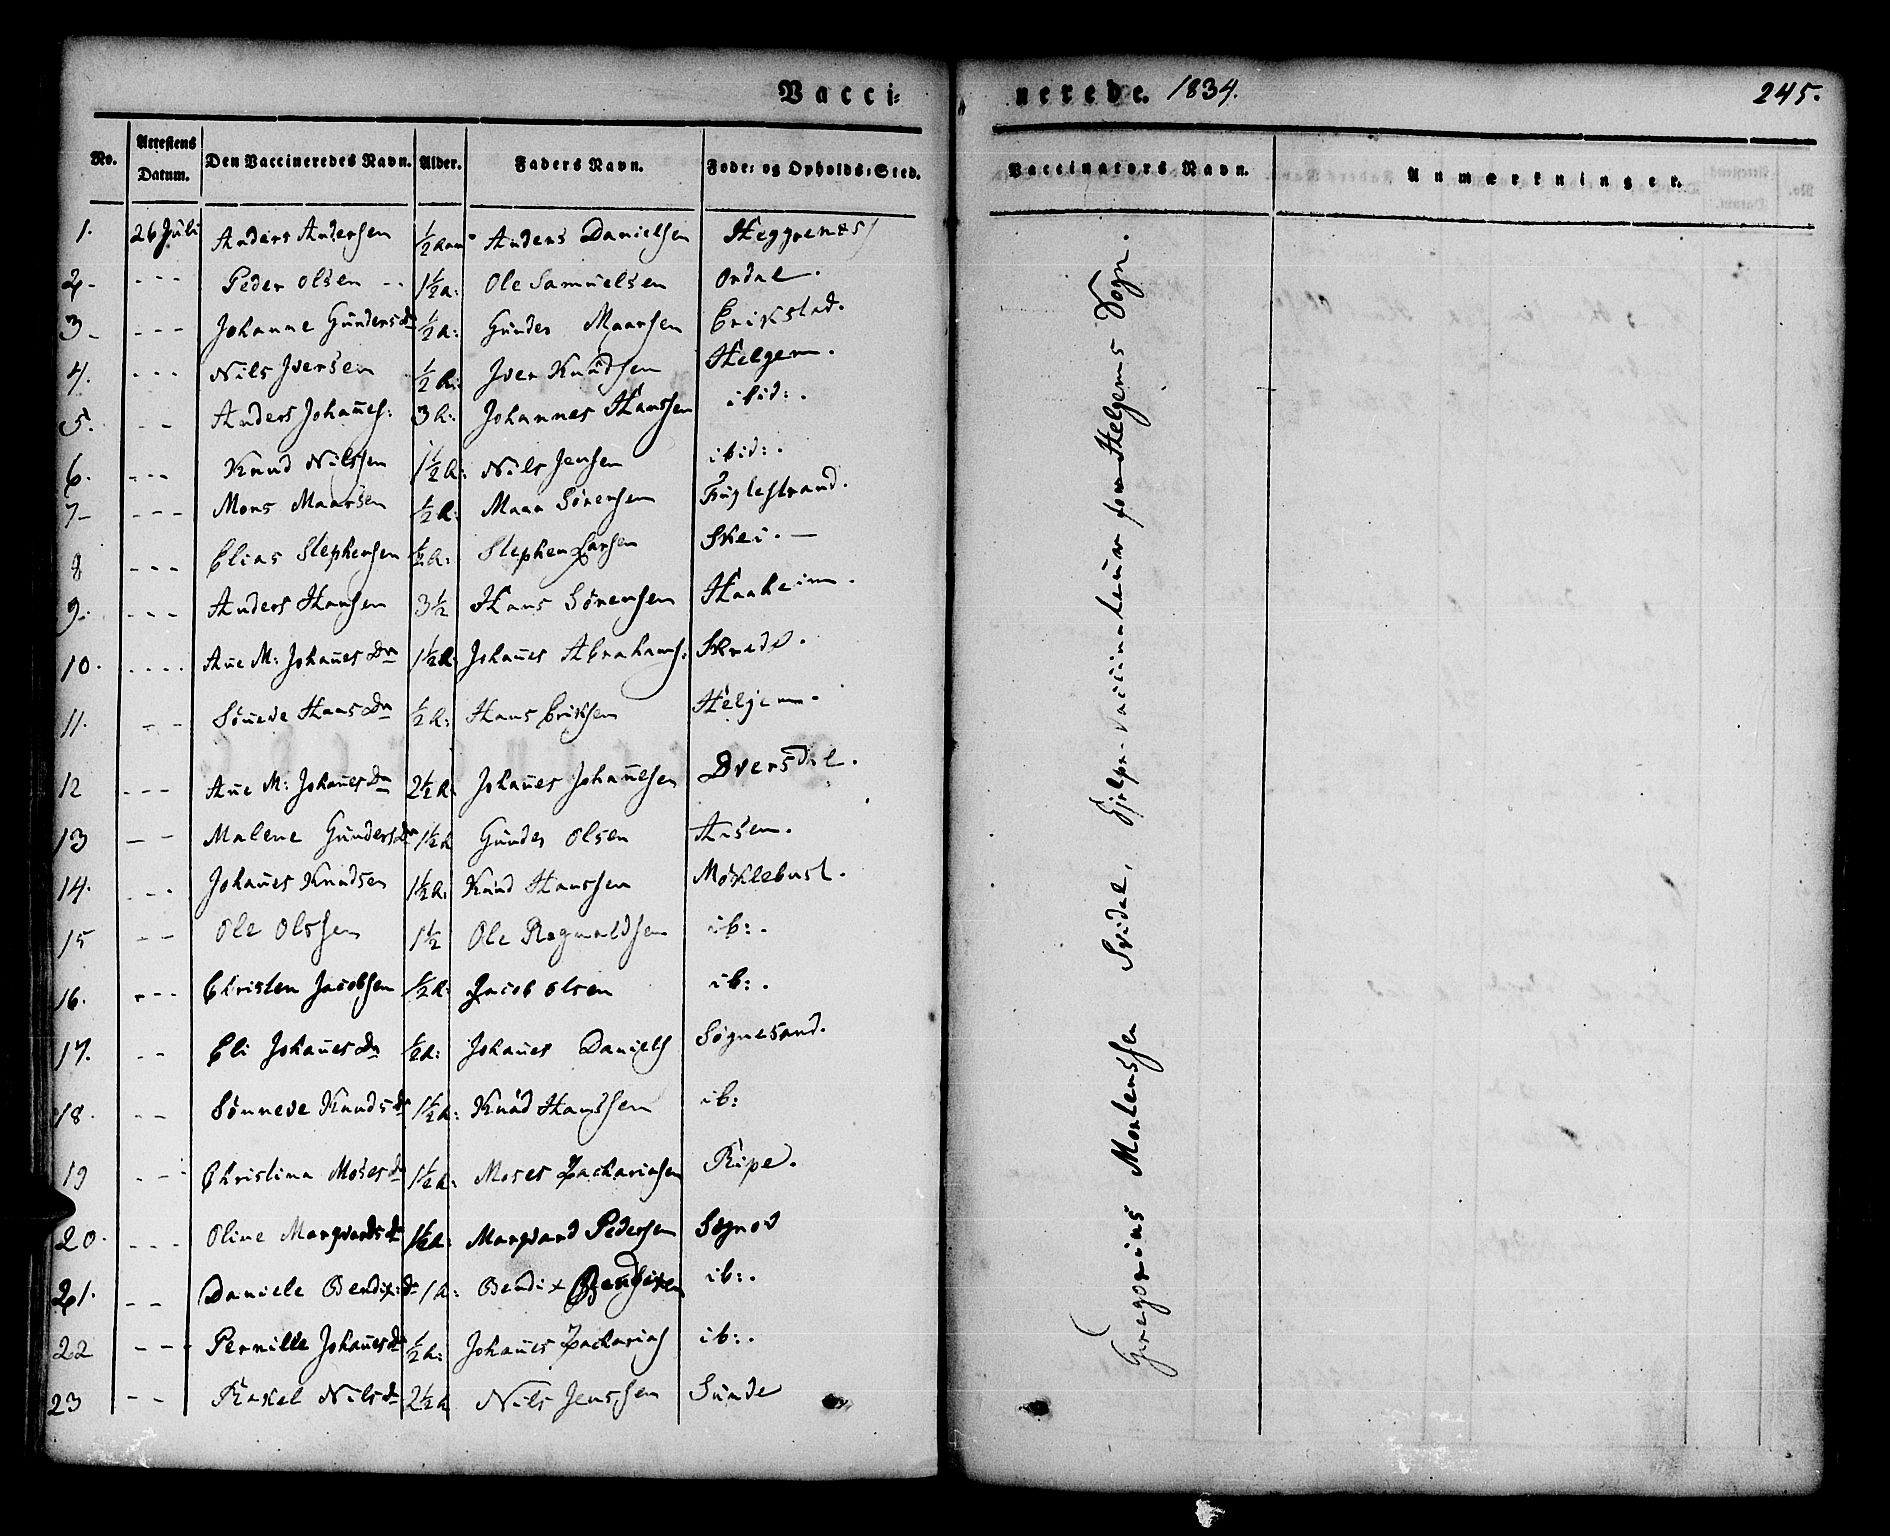 Vaccinerede. 1834. 245.
No. Attestens Datum. Den Vaccineredes Navn. Alder. Faders Navn. Føde- og Opholds-Sted. Vaccinators Navn. Anmærkninger.
1. 26 Juli Anders Andersen ½ Aar Anders Danielsen Heggrenæs
2. - - - Peder Olsen 1½ A: Ole Samuelsen Ordal.
3 - - - Johanne Gundersdr ½ A: Gunder Maarsen Erikstad.
4. - - - Nils Iversen ½ A: Iver Knudsen Helgem.
5. - - Anders Johannes: 3 A: Johannes Hanssen ibid:.
6. - - - Knud Nilssen 1½ A: Nils Jensen ibid:.
7 - - - Mons Maarsen ½ A: Maar Sørensen Fuglestrand.
8 - - - Elias Stephensen ½ A: Stephen Larsen Skei. —
9. - - - Anders Hansen 3½ Hans Sørensen Haaheim.
10. - - - - Ane M: Johanes Dr 1½ A: Johanes Abrahams: Skrede.
11. - - Sønneve Hans Dr ½ A: Hans Eriksen Helgem.
12 - - - Ane M: Johanes Dr 2½ A. Johanes Johannesen Dversdal.
13 - - Malene Gundersdr 1½ A Gunder Olsen Aasen.
14. - - - Johanes Knudsen 1½ A: Knud Hanssen Møklebust.
15 - - Ole Olssen 1½ Ole Ragnvaldsen ib:.
16. - - - Christen Jacobsen ½ A: Jacob Olsen ib:.
17. - - Eli Johanes Dr ½ A: Johanes Daniels Søgnesand.
18. - - Sønneve Knudsdr 1½ A: Knud Hanssen ib:
19 - - - Christina Moses dr 1½ A: Moses Zachariasen Ripe.
20. - - - Oline Marqvardsdr 1½ A: Marqvard Pedersen Søgnod
21. - - Daniele Bendix: dr 1 A: Bendix Bendixen ib:.
22 - - - Pernille Johanesdr ½ A: Johanes Zacharias ib:.
23 - - Rakel Nilsdr 2½ A Nils Jenssen Sunde
Gregorius Mortenssen Svidal, Hjelpe-Vaccinateur for Helgems Sogn.